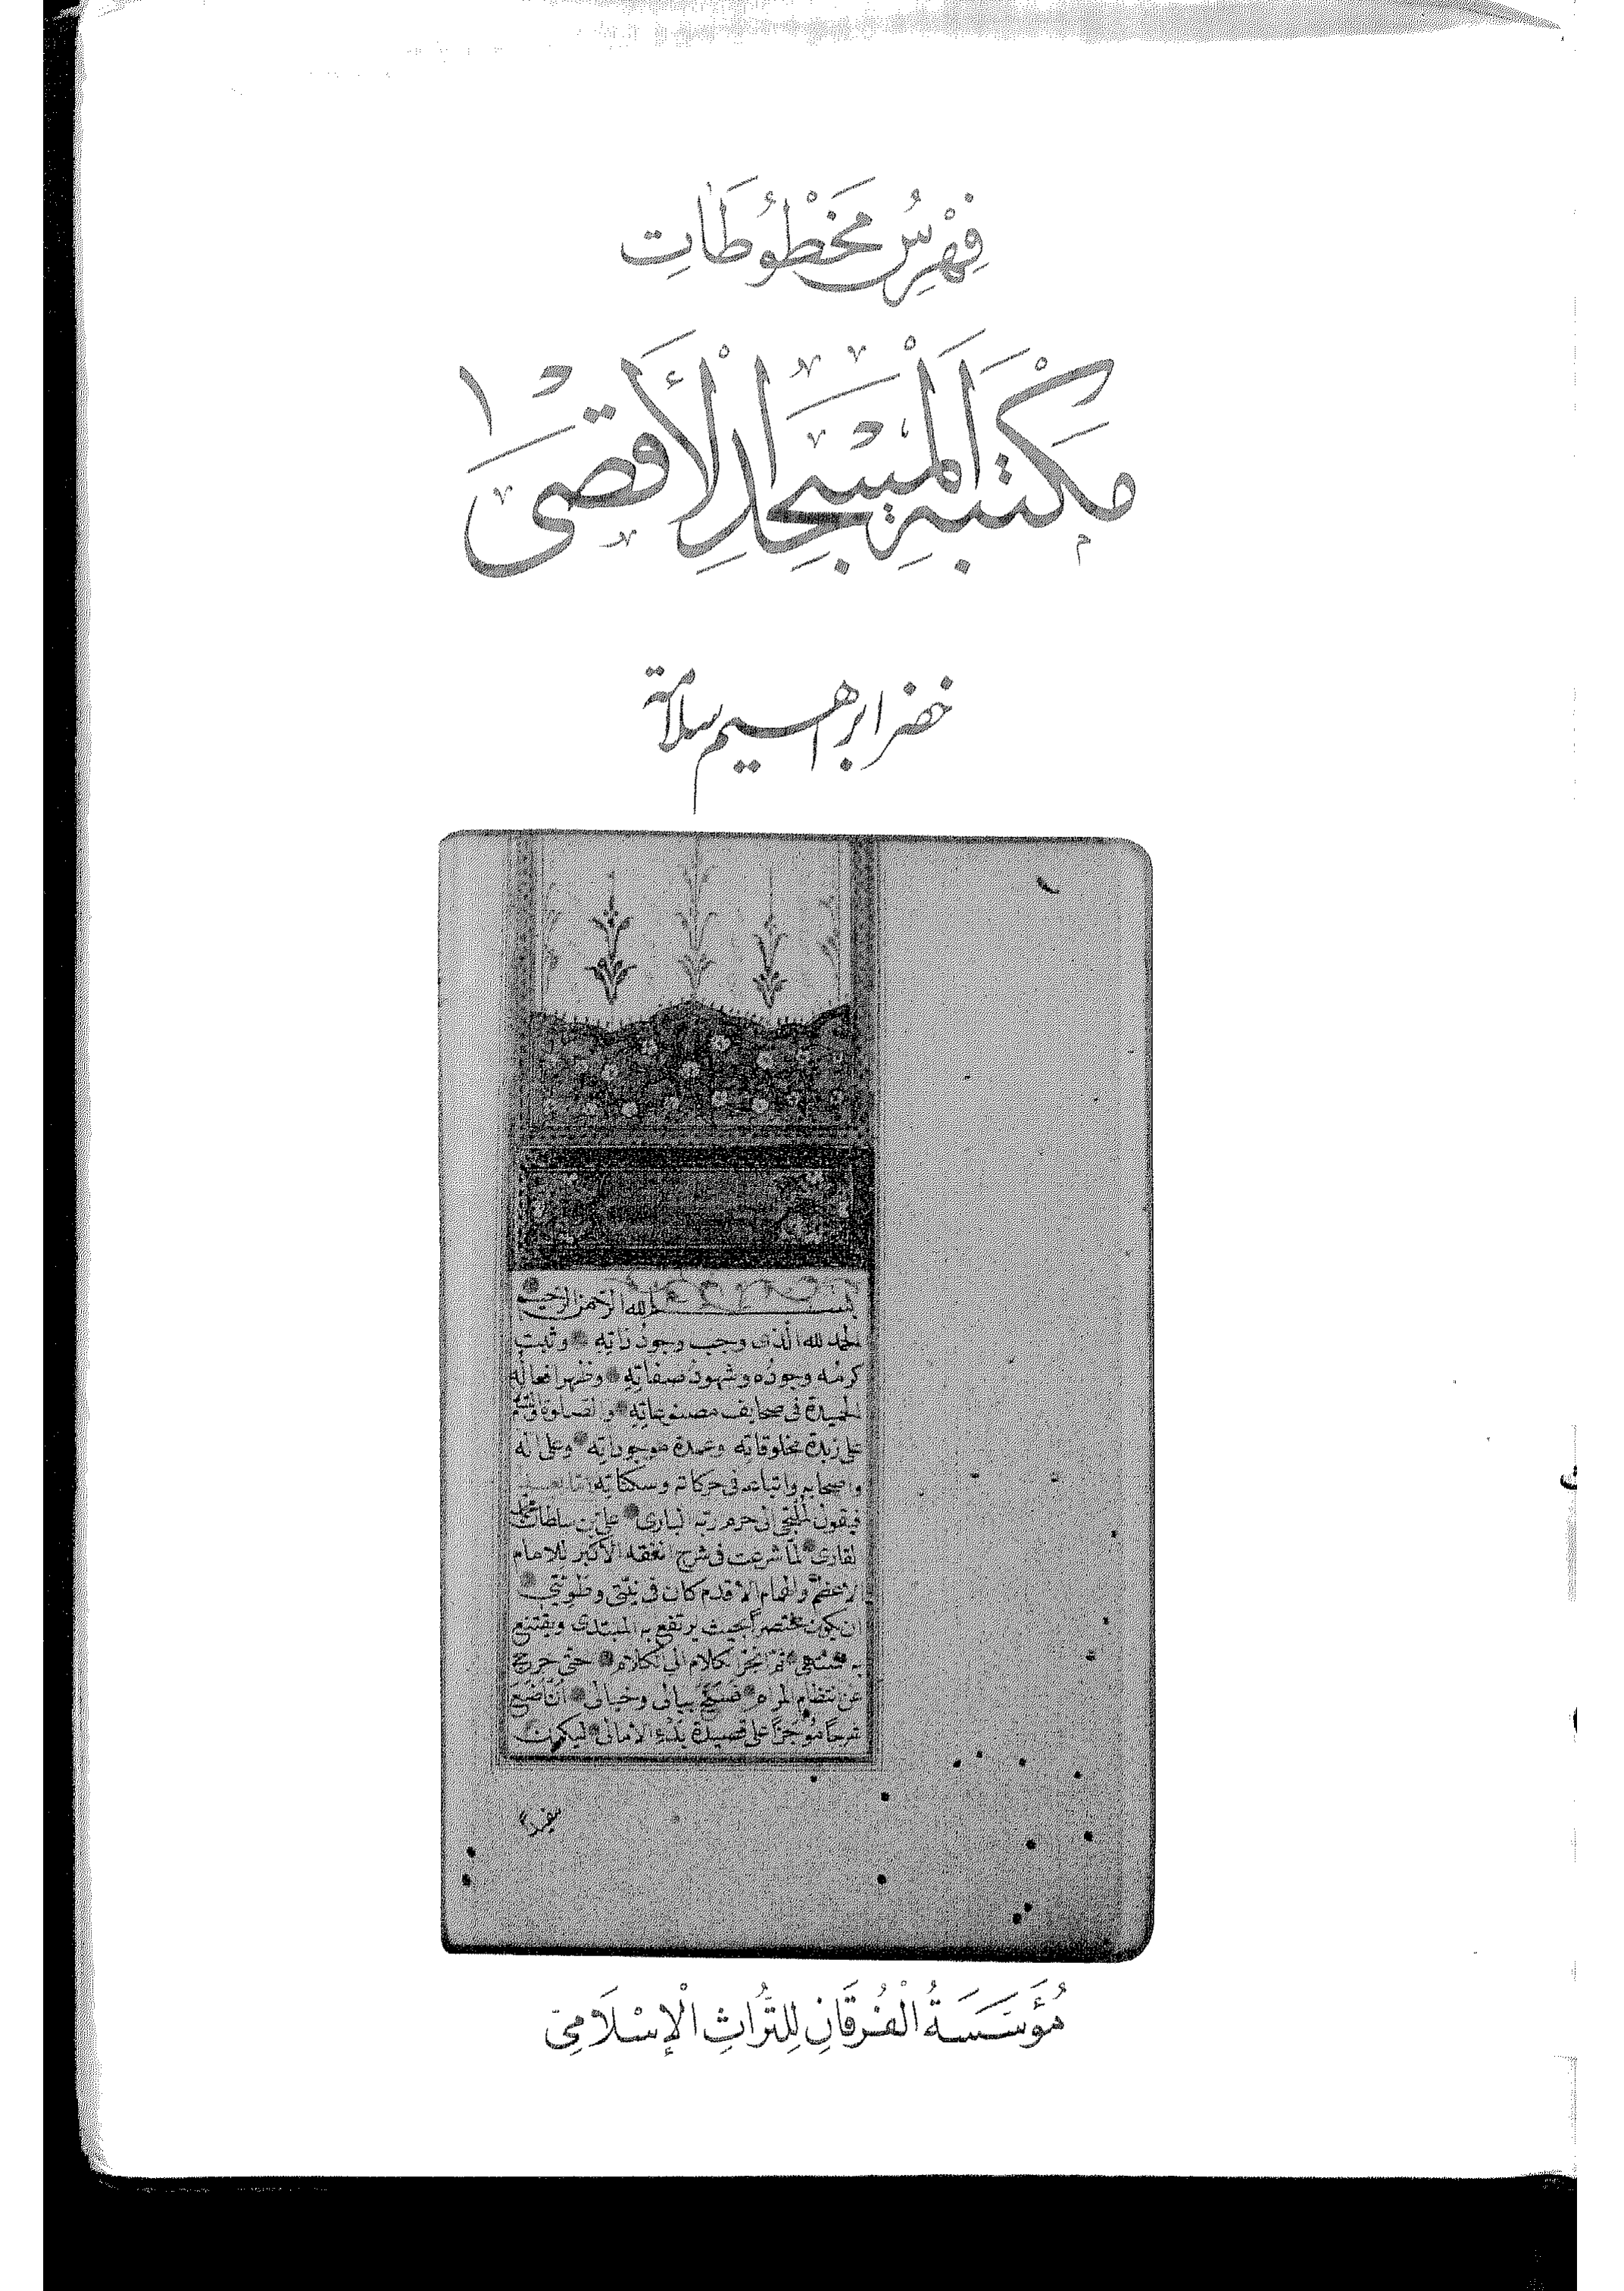 فِهْرِسُ مَخْطُوطَاتِ
مَكْتَبَةِ الْمَسْجِدِ الْأَقْصَى
خضر ابراهيم سلامة
بسم الله الرحمن الرحيم
الحمد لله الذى وجب وجود ذاته وثبت
كرمه وجوده وشهود صفاته وظهر افعاله
الحميدة فى صحايف مصنوعاته والصلوة
على زبدة مخلوقاته وعمدة موجوداته وعلى اله
واصحابه واتباعه فى حركاته وسكناته اما بعد
فيقول الملتجى الى حرم ربه البارى على بن سلطان محمد
القارى لما شرعت فى شرح الفقه الاكبر للامام
الاعظم والهمام الاقدم كان فى نيتى وطويتى
ان يكون مختصرا بحيث يرتفع به المبتدى ويقتنع
به المنتهى ثم انجر الكلام الى الكلام حتى خرج
عن انتظام المرام فسنح ببالى وخيالى ان اضع
شرحا موجزا على قصيدة بدء الامالى ليكون
مُؤَسَّسَةُ الْفُرْقَانِ لِلتُّرَاثِ الْإِسْلَامِيّ